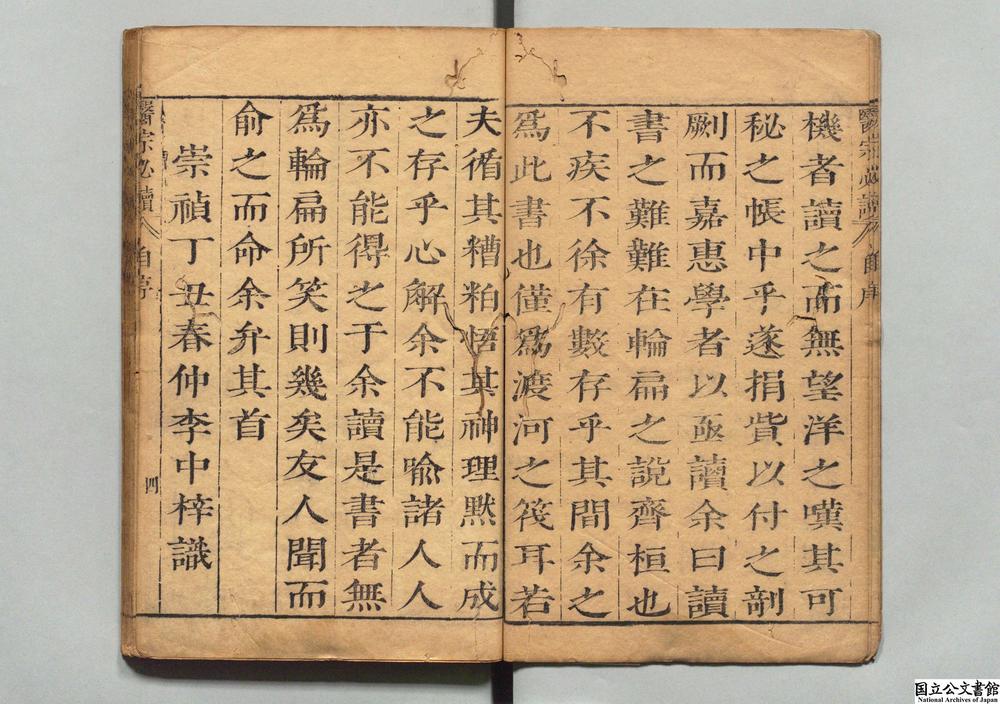 機者讀之而無望洋之嘆其可
秘之帳中乎遂捐貲以付之剞
劂而嘉惠學者以亟讀余曰讀
書之難難在輪扁之說齊桓也
不疾不徐有數存乎其間余之
爲此書也僅爲渡河之筏耳若
夫循其糟粕悟其神理默而成
之存乎心解余不能喻諸人人
亦不能得之于余讀是書者無
爲輪扁所笑則幾矣友人聞而
俞之而命余弁其首
崇禎丁丑春仲李中梓識
醫宗必讀
自序
四
国立公文書館
National Archives of Japan